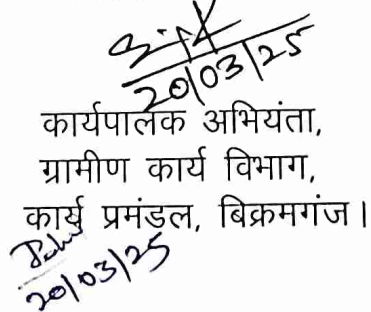 20/03/25
कार्यपालक अभियंता,
ग्रामीण कार्य विभाग,
कार्य प्रमंडल, बिक्रमगंज।
20/03/25